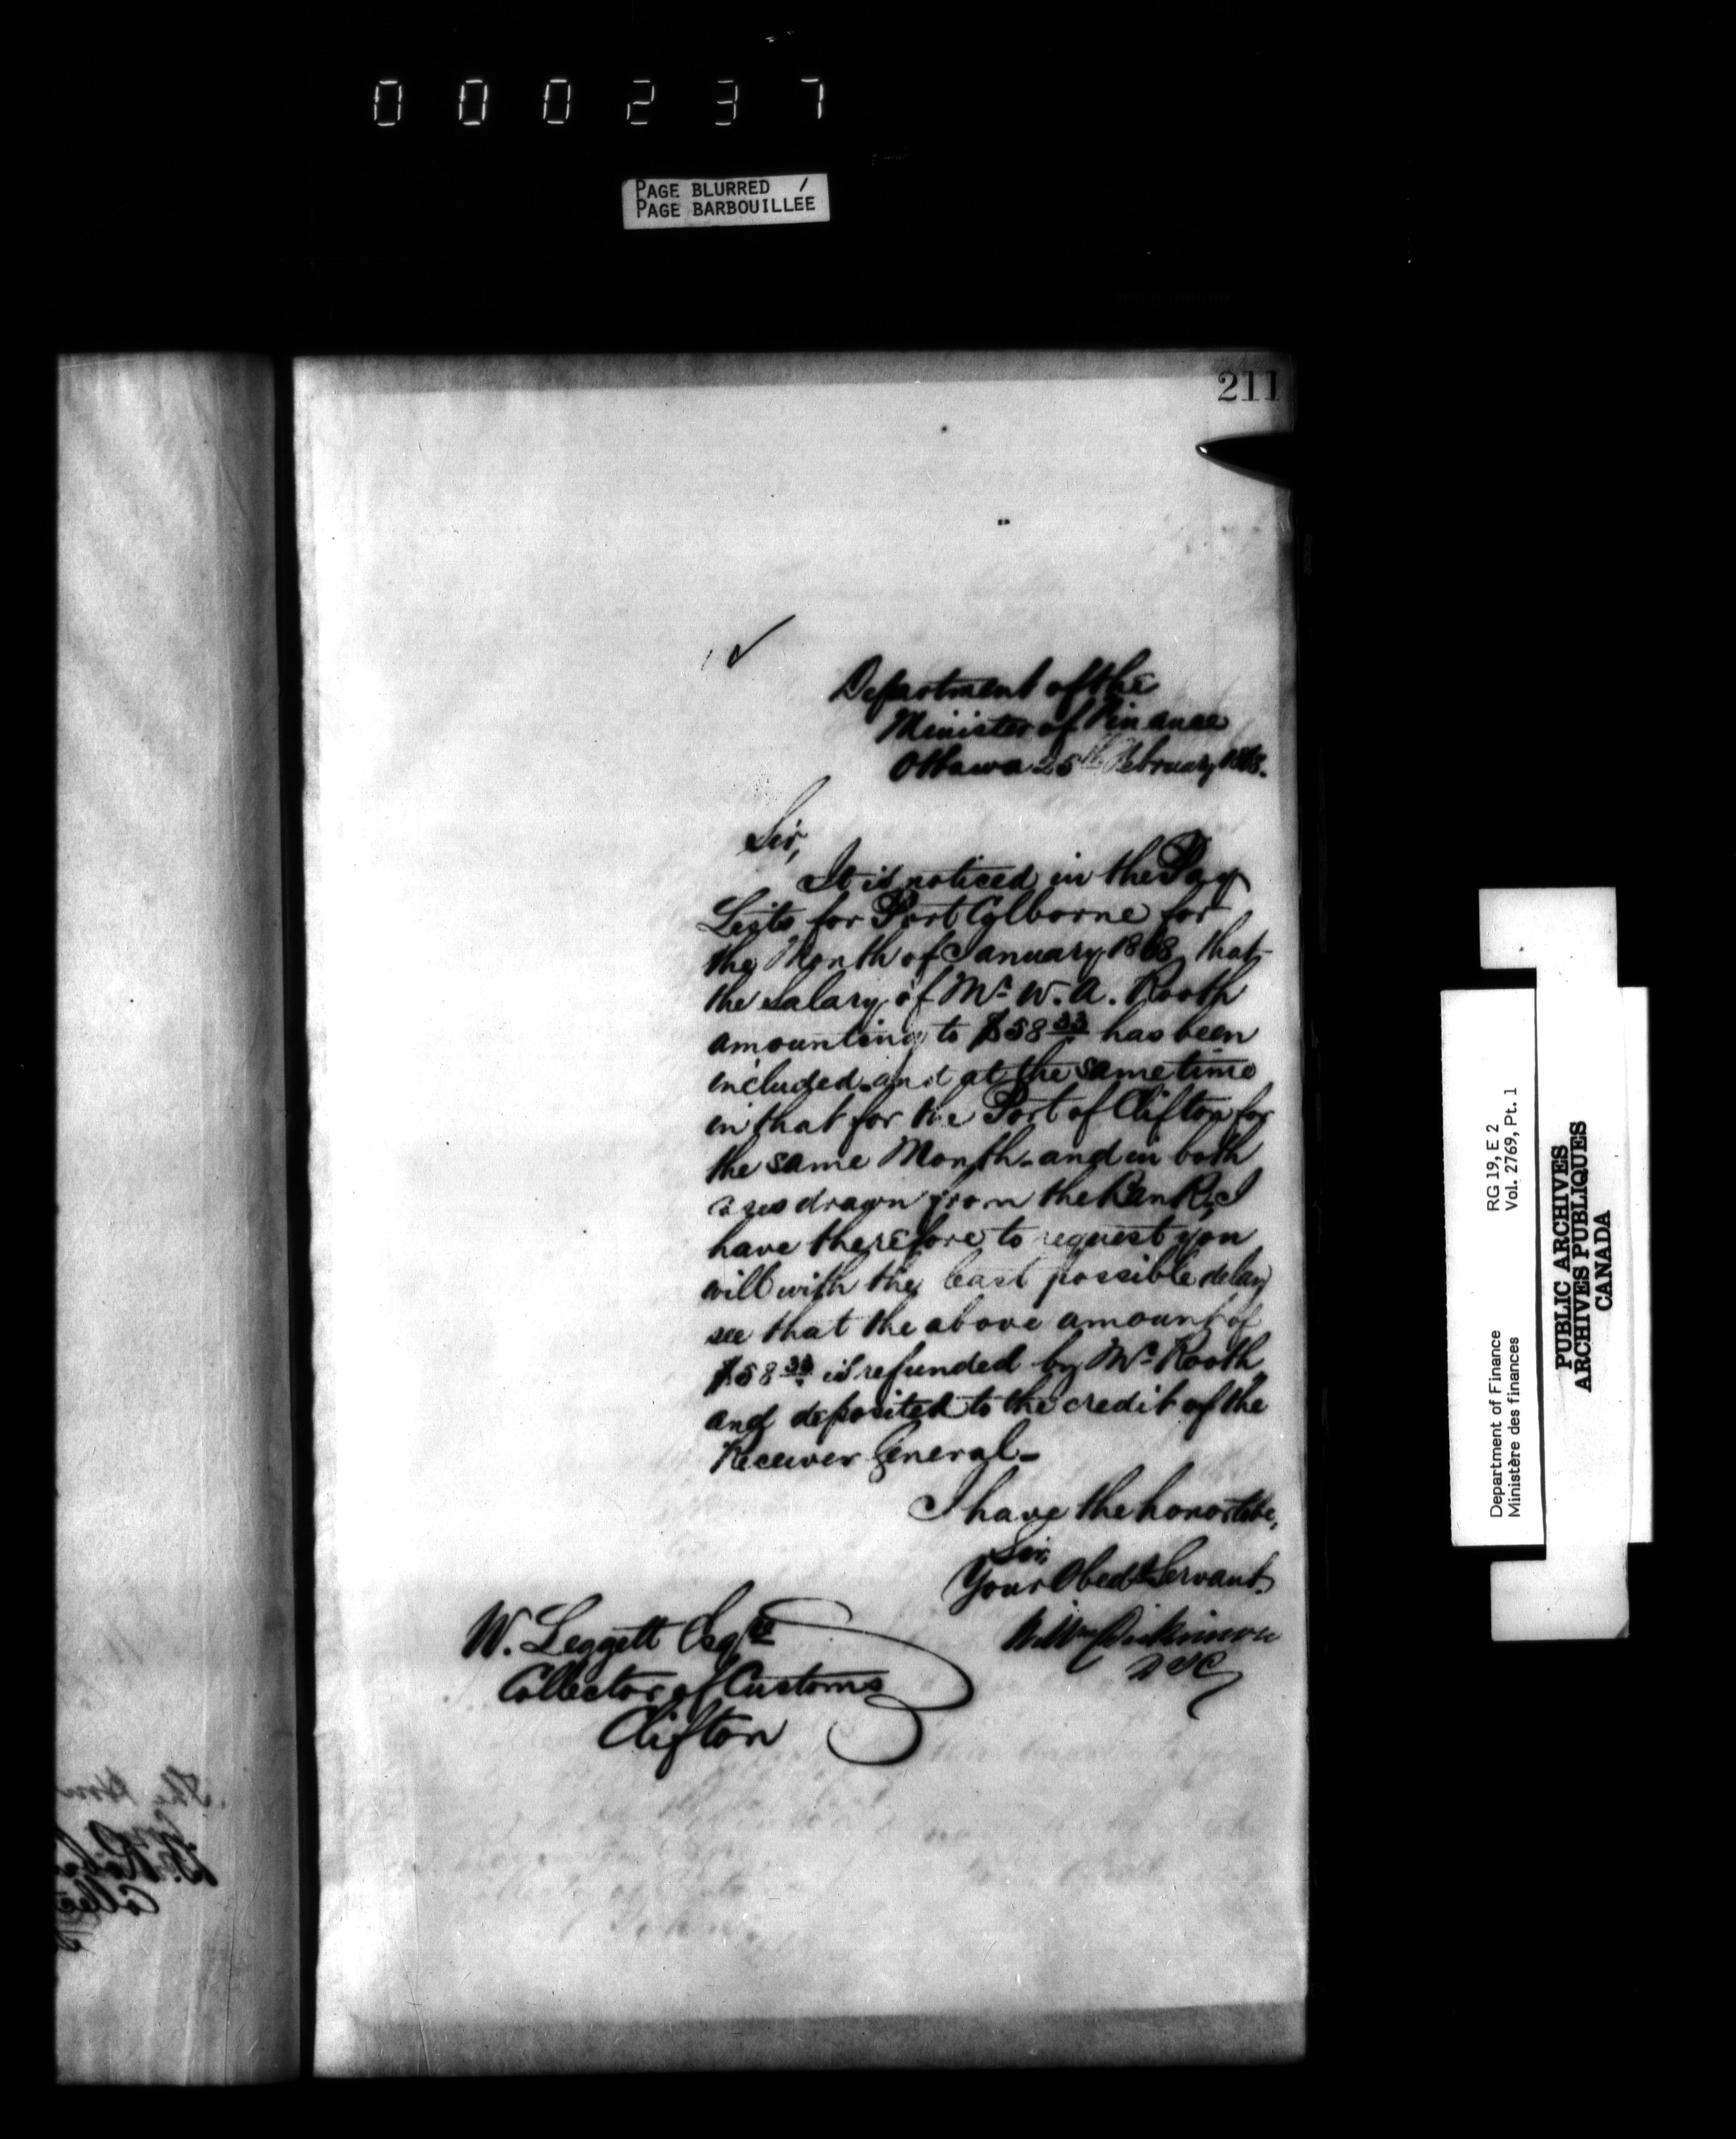 000237
PAGE BLURRED /
PAGE BARBOUILLÉE
211
Department of the
Minister of Finance
Ottawa 25th February 1868.
Sir,
It is noticed in the Pay
Lists for Port Colborne for
the Month of January 1868 that
the salary of Mr W. A. Rooth
amounting to $58 33 has been
included and at the same time
in that for the Port of Clifton for
the same Month - and in both
cases drawn from the Bank, I
have therefore to request you
will with the least possible delay
see that the above amount of
$58 33 is refunded by Mr Rooth
and deposited to the credit of the
Receiver General -
I have the honor to be,
Sir,
Your Obedt Servant.
Willm Dickinson
W. Leggett Esqre
Collector of Customs
Clifton
Department of Finance RG 19, E 2
Ministère des finances Vol. 2769, Pt. 1
PUBLIC ARCHIVES
ARCHIVES PUBLIQUES
CANADA